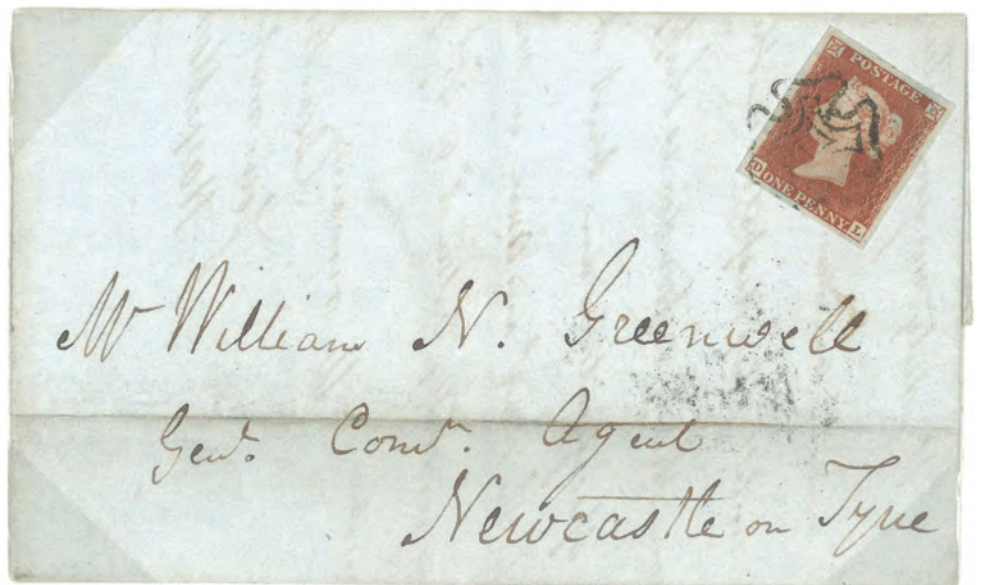 POSTAGE
D ONE PENNY. L
Mr William N. Greenwell
Genl. Comn. Agent
Newcastle on Tyne